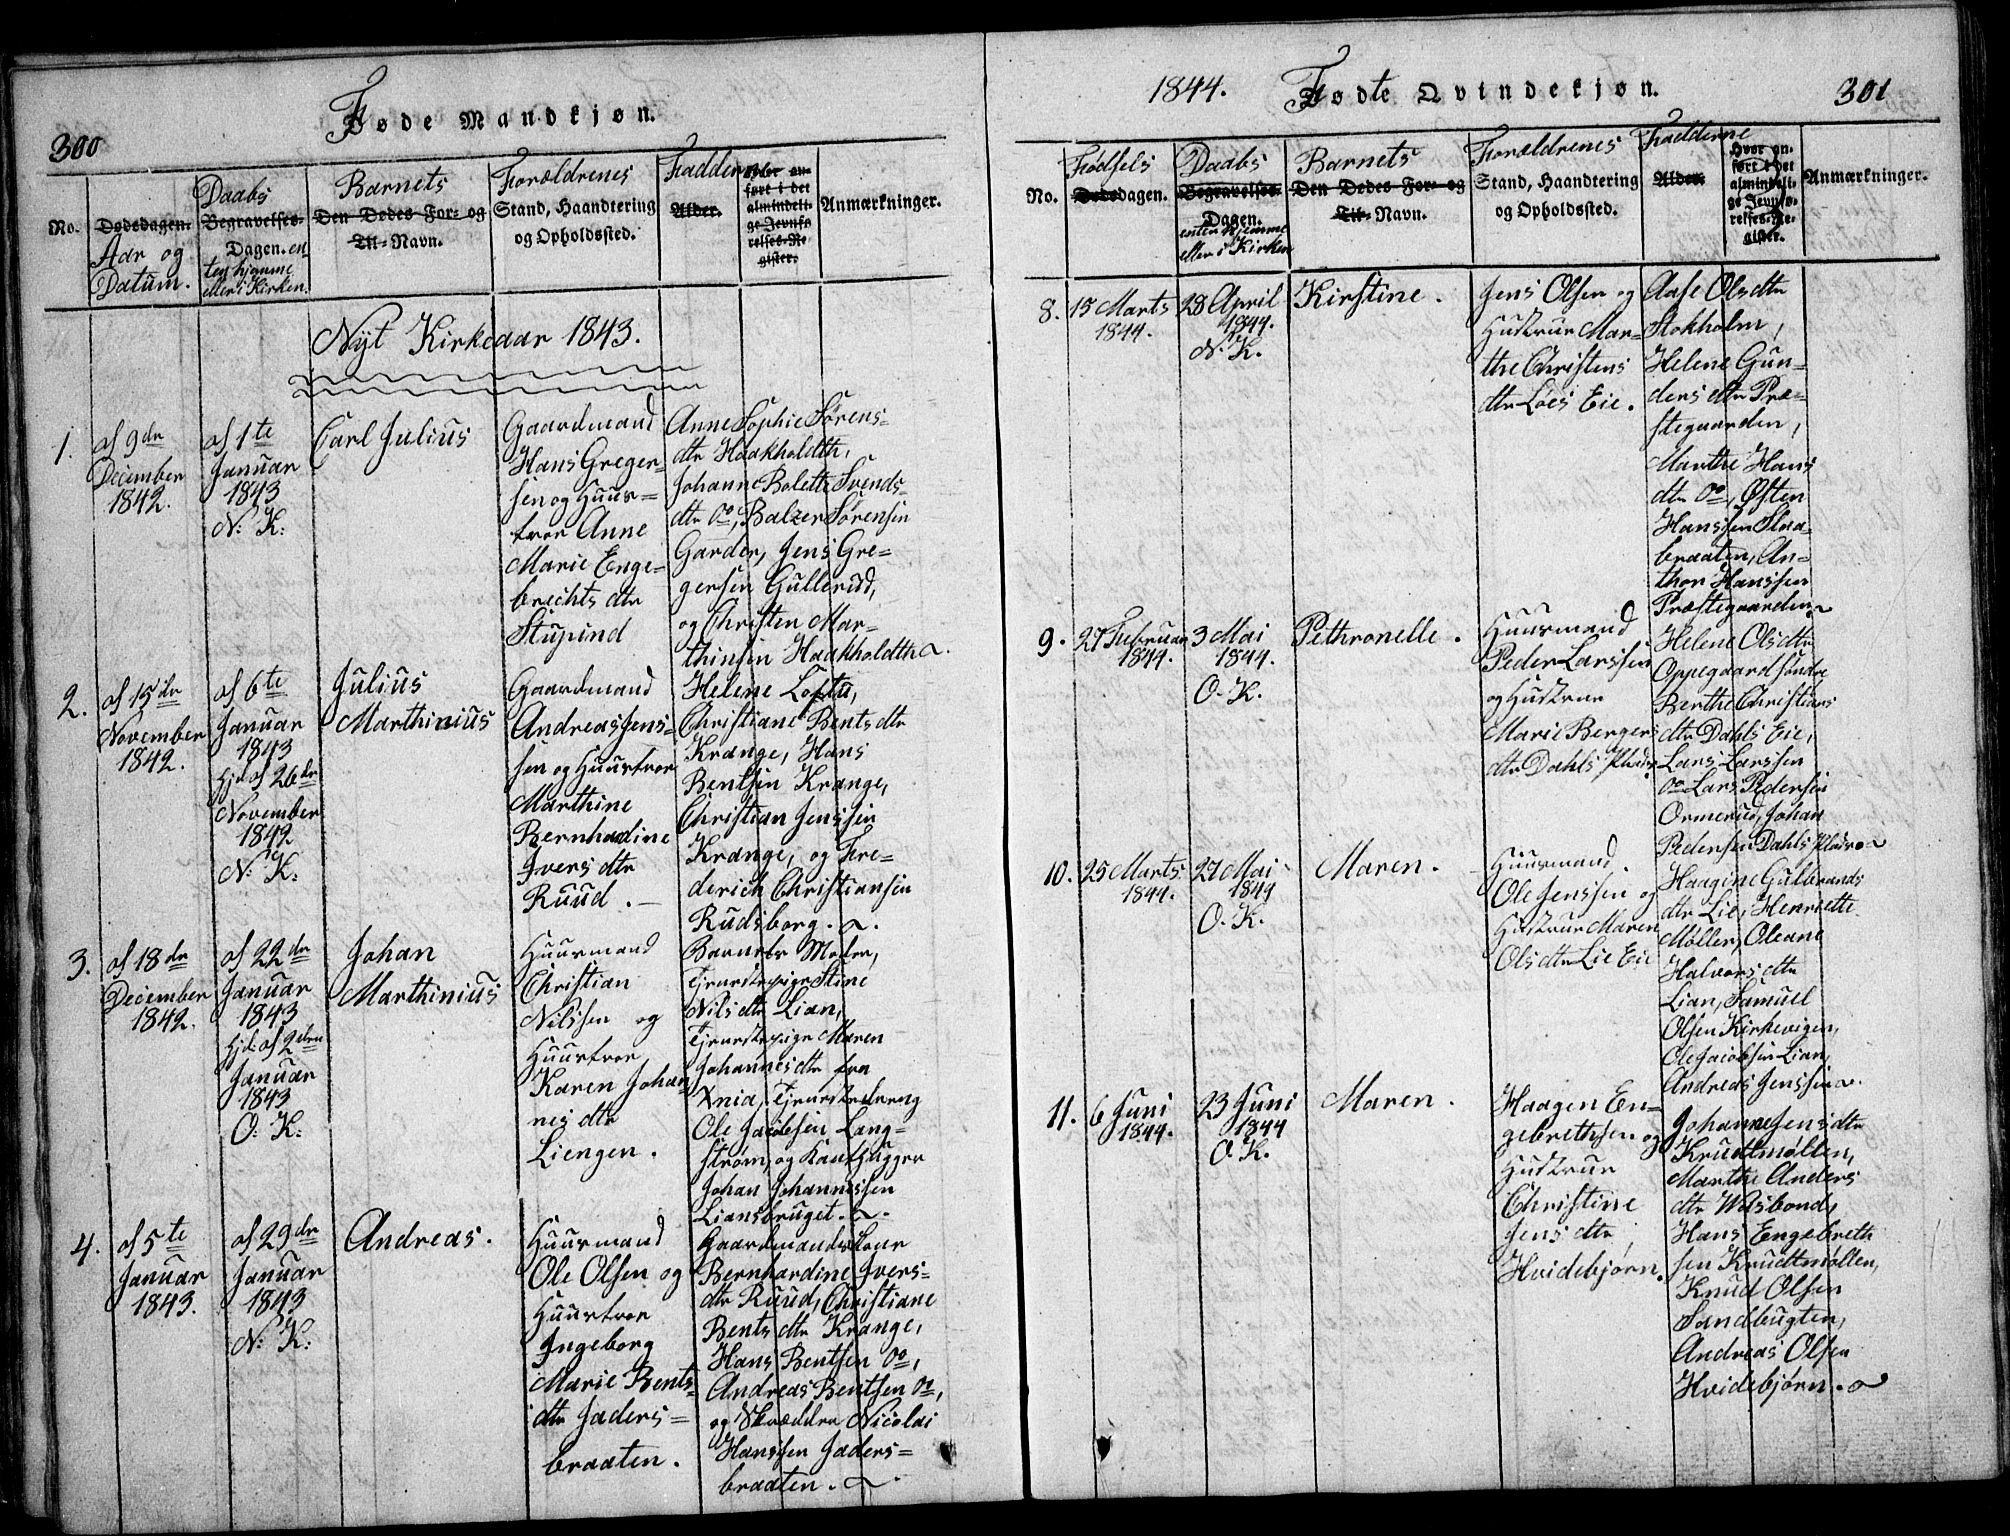 300
Føde Mandkjøn.
No.
Dødedagen.
Aar og
Datum.
Daabs
Begravelses-
Dagen. en
ten hjemme
eller i Kirken.
Barnets
Den Dødes For- og
Til-Navn.
Forældrenes
Stand, Haandtering
og Opholdssted.
Fadderne
Alder.
Hvor an-
ført i det
almindeli-
ge Jevnfø-
relses-Re-
gister.
Anmærkninger.
Nyt Kirkeaar 1843.
1.
af 9de
December
1842.
af 1te
Januar
1843
N: K:
Carl Julius
Gaardmand
Hans Greger-
sen og Huus-
troe Anne
Marie Enge-
brechts dtr
Stupind
Anne Sophie Sørens-
dtr Haakholdth,
Johanne Bolette Svends-
dtr do, Balzer Sørensen
Garder, Jens Gre-
gersen Gullerud,
og Christen Mar-
thinsen Haakholdth
2.
af 15de
November
1842.
af 6te
Januar
1843
Hjd. af 26de
November
1842
N: K:
Julius
Marthinius
Gaardmand
Andreas Jens-
sen og Huustroe
Marthine
Bernhadine
Ivers dtr
Ruud.
Helene Loftu,
Christiane Bents dtr
Krange, Hans
Bentsen Krange,
Christian Jenssen
Krange, og Fre-
derich Christiansen
Rudsborg.
3.
af 18de
December
1842.
af 22de
Januar
1843
Hjd. af 2den
Januar
1843
O: K:
Johan
Marthinius
Huusmand
Christian
Nilssen og
Huustroe
Karen Johan
nes dtr
Liengen.
Barnets Moder,
Tjenestepige Stine
Nils dtr Lian,
Tjenestepige Maren
Johannes dtr fra
Xnia, Tjenestedreng
Ole Jacobsen Lang-
strøm, og
Johan Johannessen
Liansbruget.
4.
af 5te
Januar
1843.
af 29de
Januar
1843
N: K:
Andreas.
Huusmand
Ole Olsen og
Huustroe
Ingeborg
Marie Bents-
dtr Jaders-
braaten.
Gaardmandskone
Bernhardine Ivers-
dtr Ruud, Christiane
Bents dtr Krange,
Hans Bentsen do,
Andreas Bentsen do,
og Skrædder Nicolai
Hanssen Jaders-
braaten.
1844.
Fødte Qvindekjøn.
301
No.
Fødsels
Dødedagen.
Daabs
Begravelses-
Dagen.
enten hjemme
eller i Kirken
Barnets
Den Dødes For- og
Til-Navn.
Forældrenes
Stand, Haandtering
og Opholdssted.
Fadderne
Alder.
Hvor an-
ført i det
almindeli-
ge Jevnfø-
relses-Re-
gister.
Anmærkninger.
8.
15 Marts
1844.
28 April
1844.
N. K.
Kirstine.
Jens Olsen og
Hustrue Mar-
the Christens
dtr Løes Eie.
Aase Ols dtr
Stokholm,
Helene Gun-
ders dtr Præ-
stegaarden,
Marthe Hans
dtr do, Østen
Hanssen Slaa-
braaten, An-
thon Hanssen
Præstegaarden
9.
27 Februar
1844.
3 Mai
1844.
O. K.
Pethronelle.
Huusmand
Peder Larssen
og Hustrue
Marie Bergers
dtr Dahls Plads
Helene Ols dtr
Oppegaard søndre
Berthe Christians
dtr Dahls Eie,
Lars Larssen
do Lars Pedersen
Ormerud, Johan
Pedersen Dahls Plads
10.
25 Marts
1844.
27 Mai
1844
O. K.
Maren.
Huusmand
Ole Jenssen og
Hustrue Maren
Ols dtr Lie Eie
Haagine Gulbrands
dtr Lie, Henriette
Møller, Oleane
Halvors dtr
Lian, Samuel
Olsen Kirkevigen,
Ole Jacobsen Lian,
Andreas Jenssen
11.
6 Juni
1844.
23 Juni
1844
O. K.
Maren.
Haagen En-
gebrethsen og
Hustrue
Christine
Jens dtr
Hvidebjørn.
Johanne Jens dtr
Krudtmøllen,
Marthe Anders
dtr Wasbond,
Hans Engebreth
sen Krudtmøllen,
Knud Olsen
Sandbugten,
Andreas Olsen
Hvidebjørn.